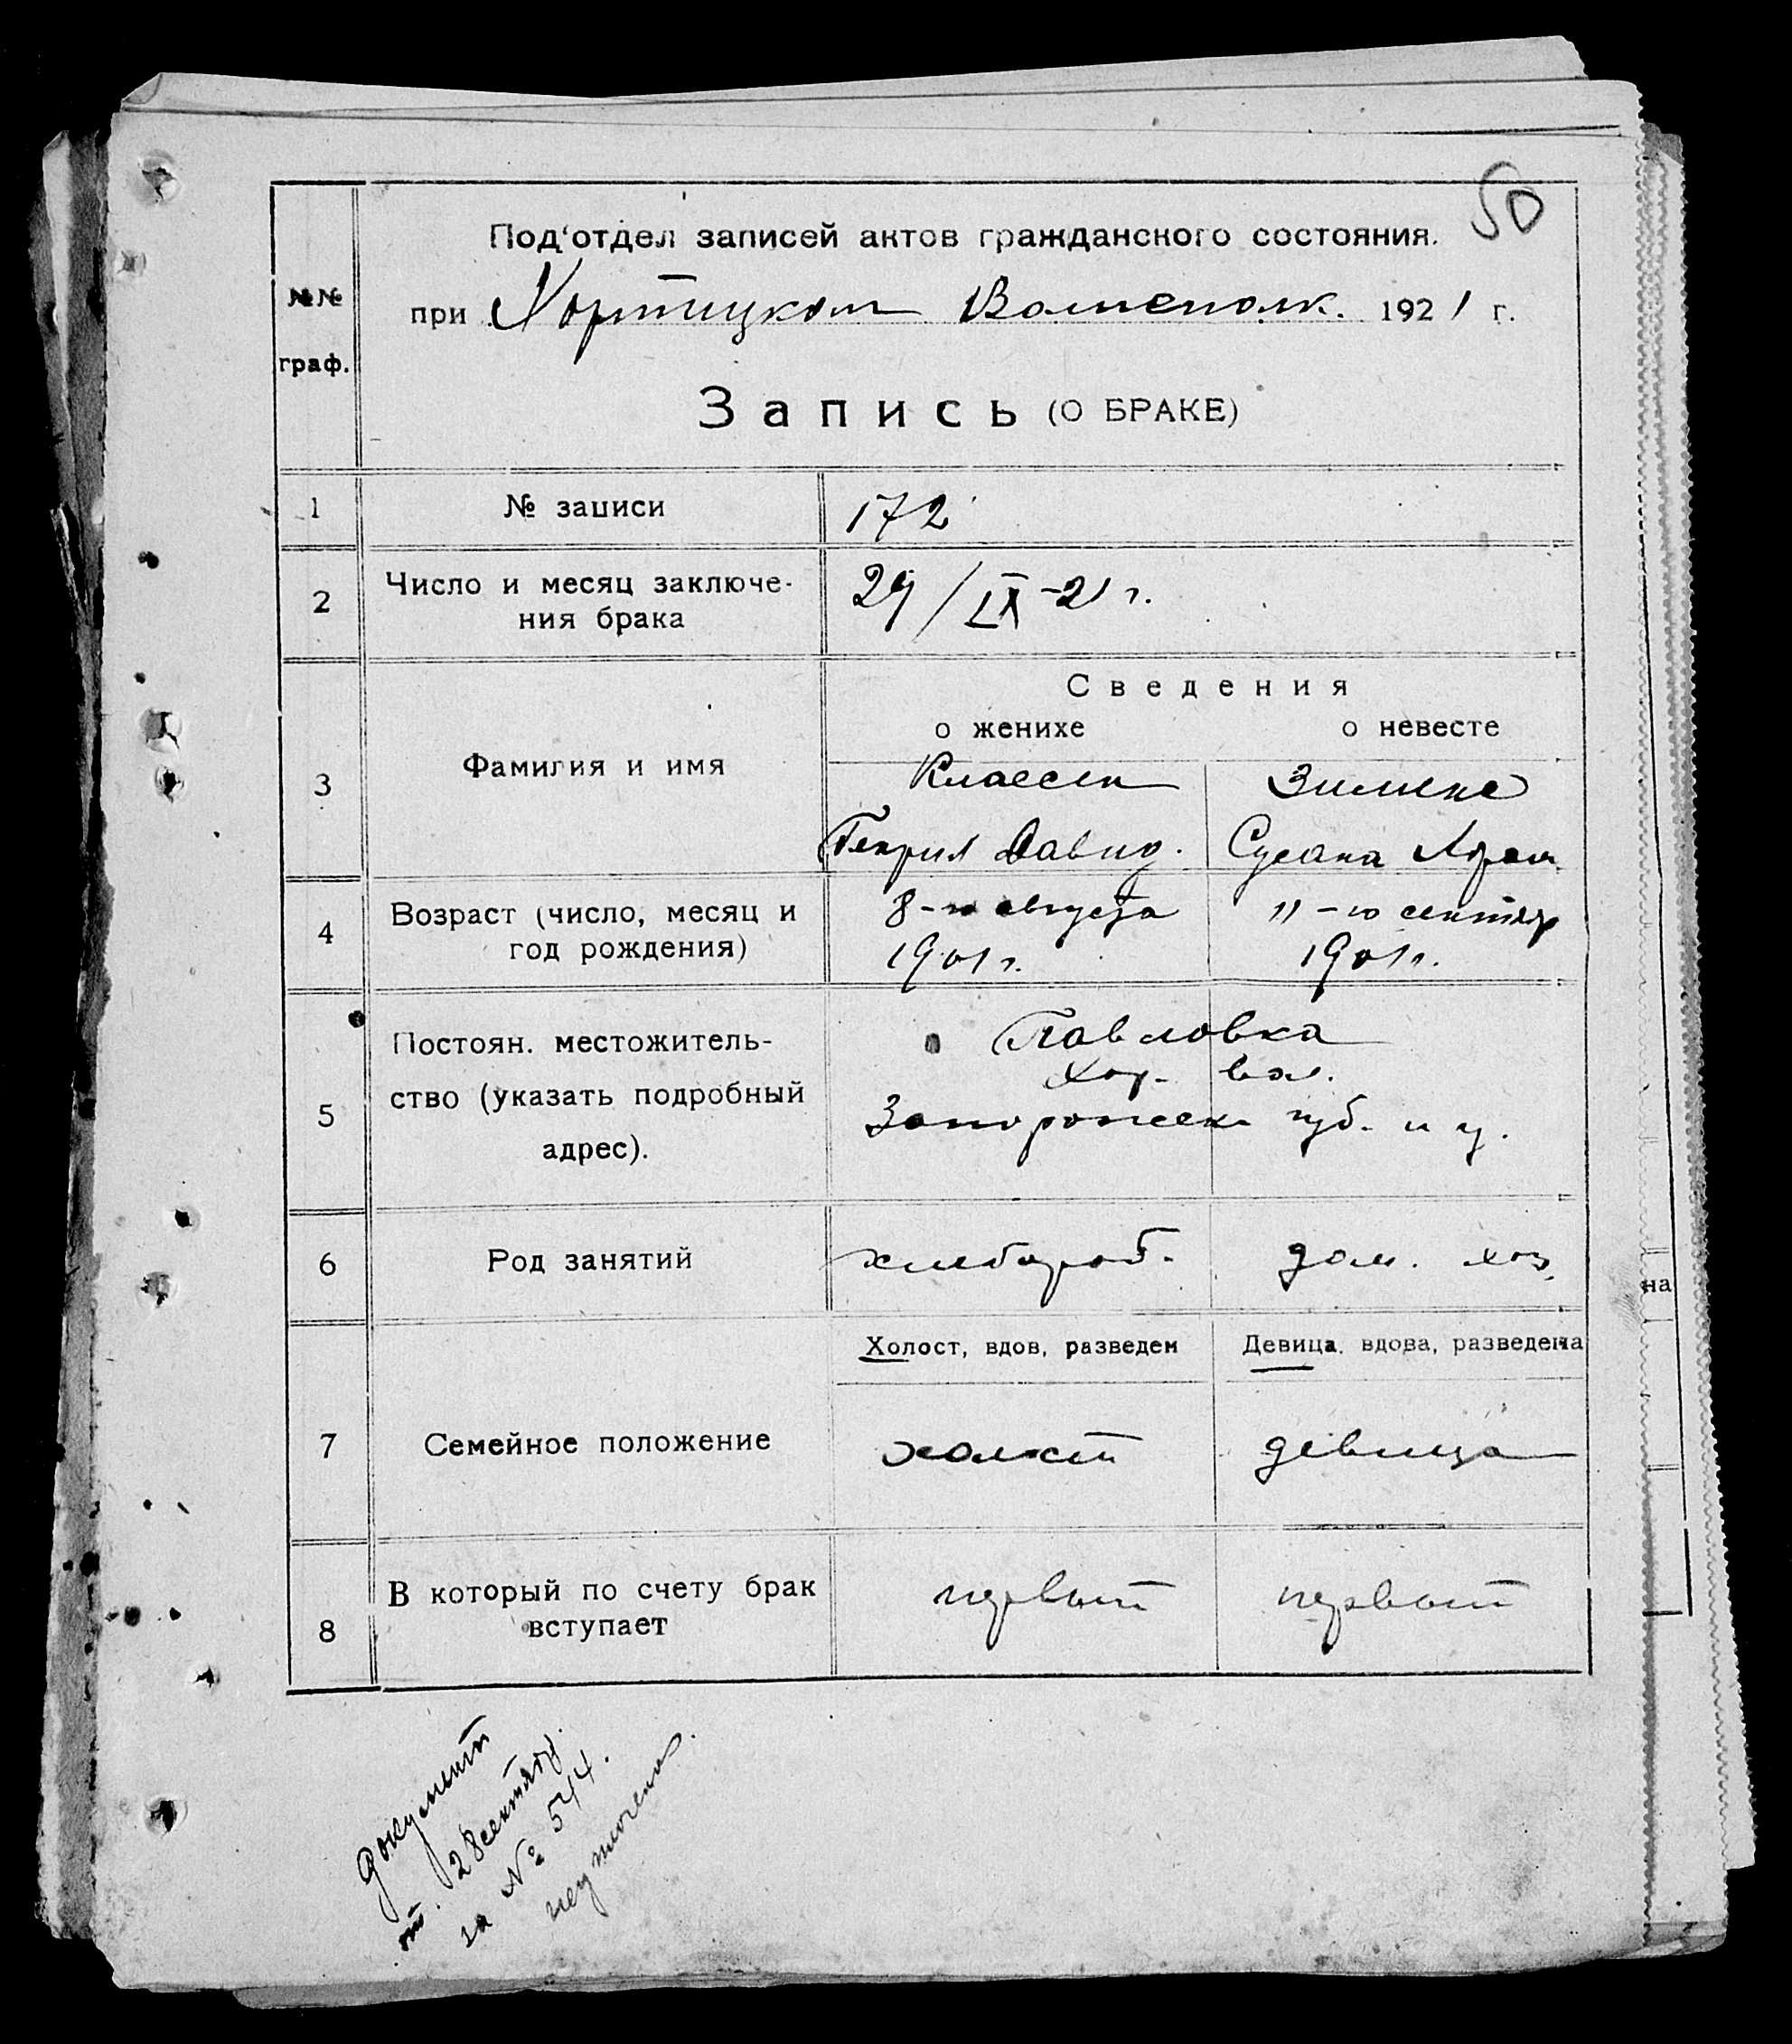 50
Под'отдел записей актов гражданского состояния.
№№
граф.
при Хортицком Волисполк. 1921 г.
Запись (О БРАКЕ)
1 № записи 172
2 Число и месяц заключе-
ния брака
29/IX-21 г.
Сведения
о женихе о невесте
3 Фамилия и имя
Классен
Генрих Давид.
Зименс
Сусана Абрам
4 Возраст (число, месяц и
год рождения)
8-го августа
1901 г.
11-го сентяб
1901 г.
5 Постоян. местожитель-
ство (указать подробный
адрес).
Павловка
Хор. вол.
Запорожск губ. и у.
6 Род занятий хлебороб. дом. хоз.
Холост, вдов, разведен Девица, вдова, разведена
7 Семейное положение холост девица
8 В который по счету брак
вступает
первый первый
документ
от 28 сентября
за № 544.
на